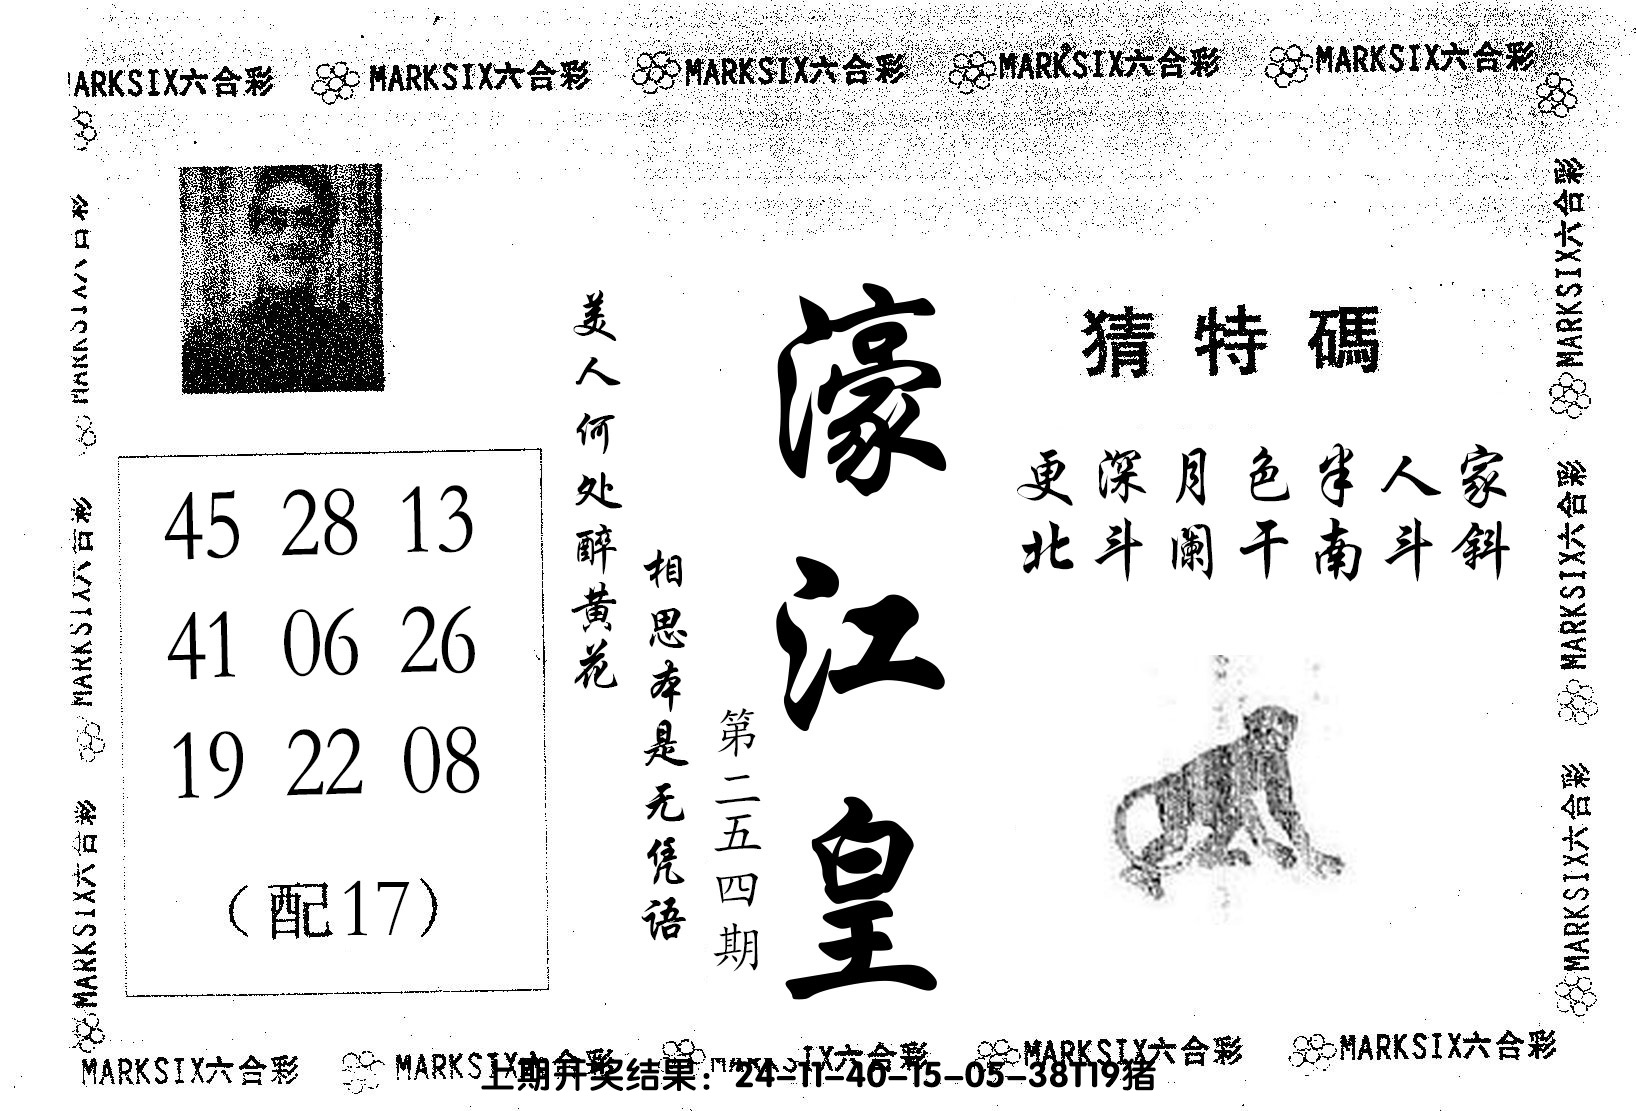 MARKSIX六合彩 MARKSIX六合彩 MARKSIX六合彩 MARKSIX六合彩 MARKSIX六合彩
MARKSIX六合彩
MARKSIX六合彩
MARKSIX六合彩
45 28 13
41 06 26
19 22 08
(配17)
美人何处醉黄花
相思本是无凭语
第二五四期
濠江皇
猜特碼
更深月色半人家
北斗阑干南斗斜
MARKSIX六合彩
MARKSIX六合彩
MARKSIX六合彩
MARKSIX六合彩 MARKSIX六合彩 MARKSIX六合彩 MARKSIX六合彩 MARKSIX六合彩
上期开奖结果：24-11-40-15-05-38T19猪